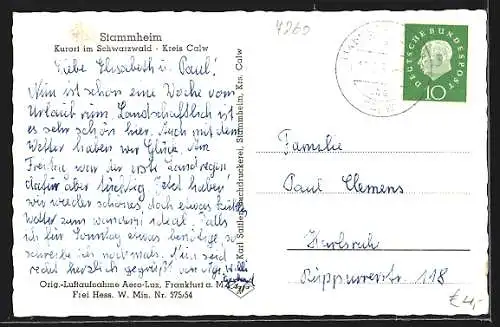 Stammheim
Kurort im Schwarzwald - Kreis Calw
4260
Liebe Elisabeth u. Paul!
Nun ist schon eine Woche vom
Urlaub rum. Landschaftlich ist
es sehr schön hier. Auch mit dem
Wetter haben wir Glück. Am
Freitag war der erste Landregen
dafür aber tüchtig. Jetzt haben
wir wieder schönes doch etwas kühles
Wetter zum wandern ideal. Falls
ich für Sonntag etwas benötige, so
schreibe ich nochmals. Nun seid
recht herzlich gegrüßt von
Willi
Orig.-Luftaufnahme Aero-Lux, Frankfurt a. M.
Frei Hess. W. Min. Nr. 575/54
Karl Sattler, Buchdruckerei, Stammheim, Krs. Calw
DEUTSCHE BUNDESPOST
10
Familie
Paul Clemens
Karlsruh
Rüppurrerstr. 118
€ 4,-